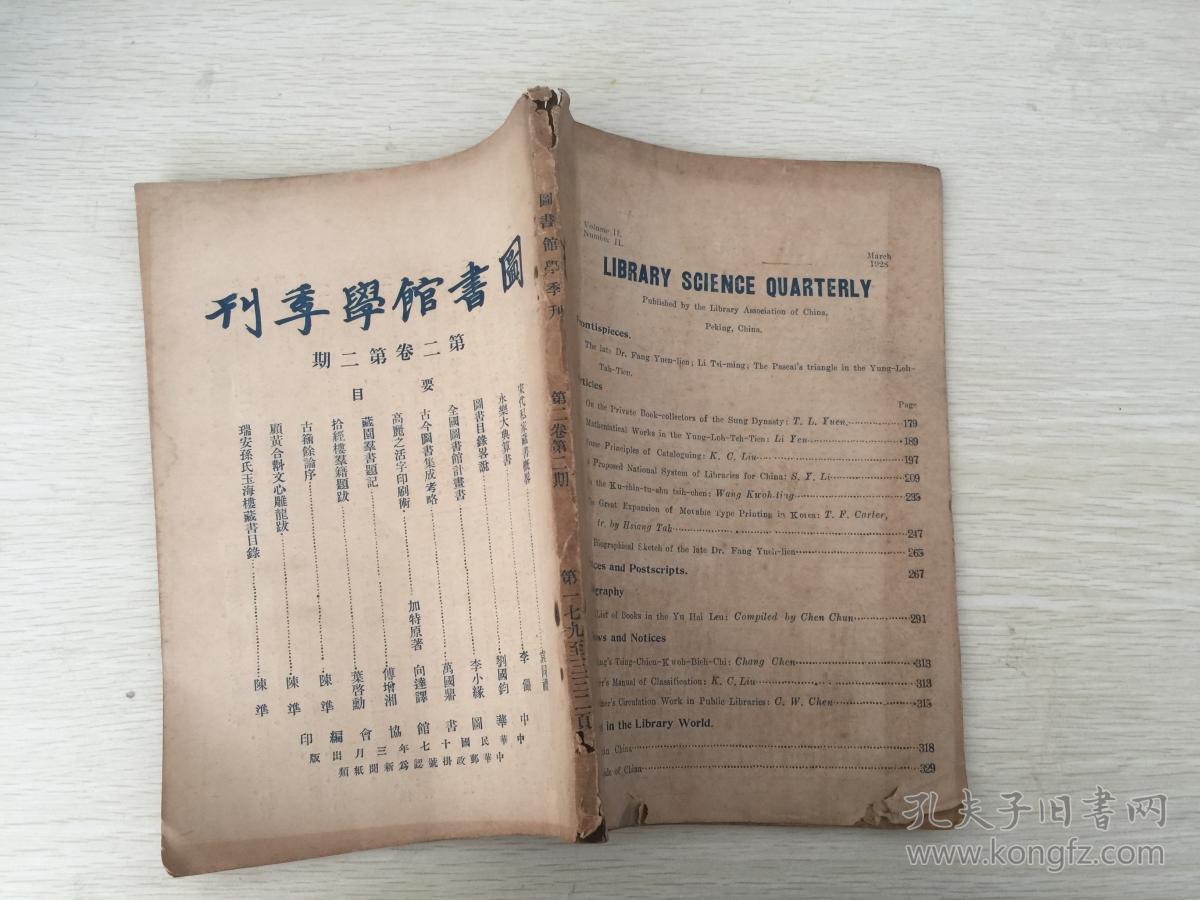 圖書館學季刊
第二卷第二期
要目
宋代私家藏書概畧 袁同禮
永樂大典算書 李儼
圖書目錄畧說 劉國鈞
全國圖書館計畫書 李小緣
古今圖書集成考略 萬國鼎
高麗之活字印刷術 加特原著 向達譯
藏園羣書題記 傅增湘
拾經樓羣籍題跋 葉啓勳
古籀餘論序 陳準
顧黃合斠文心雕龍跋 陳準
瑞安孫氏玉海樓藏書目錄 陳準
中華圖書館協會編印
中華民國十七年三月出版
中華郵政掛號認爲新聞紙類
圖書館學季刊
第二卷第二期
第一七九至三三二頁
Volume II.
Number II.
March
1928
LIBRARY SCIENCE QUARTERLY
Published by the Library Association of China,
Peking, China.
Frontispieces.
The late Dr. Fang Yuen-lien; Li Tsi-ming; The Pascal's triangle in the Yung-Loh-
Tah-Tien.
Articles
Page
On the Private Book-collectors of the Sung Dynasty: T. L. Yuen. 179
Mathematical Works in the Yung-Loh-Teh-Tien: Li Yen 189
Some Principles of Cataloguing: K. C. Liu 197
Proposed National System of Libraries for China: S. Y. Li 209
the Ku-chin-tu-shu tsih-chen: Wang Kwoh-ting 235
Great Expansion of Movable Type Printing in Korea: T. F. Carter,
tr. by Hsiang Tah 247
Biographical Sketch of the late Dr. Fang Yueh-lien 265
ces and Postscripts. 267
ography
List of Books in the Yu Hai Leu: Compiled by Chen Chun 291
ws and Notices
ng's Tsing-Chieu-Kwoh-Bieh-Chi: Chang Chen 313
er's Manual of Classification: K. C. Liu 313
ner's Circulation Work in Public Libraries: C. W. Chen 315
in the Library World.
in China 318
ide of China 329
孔夫子旧书网
www.kongfz.com